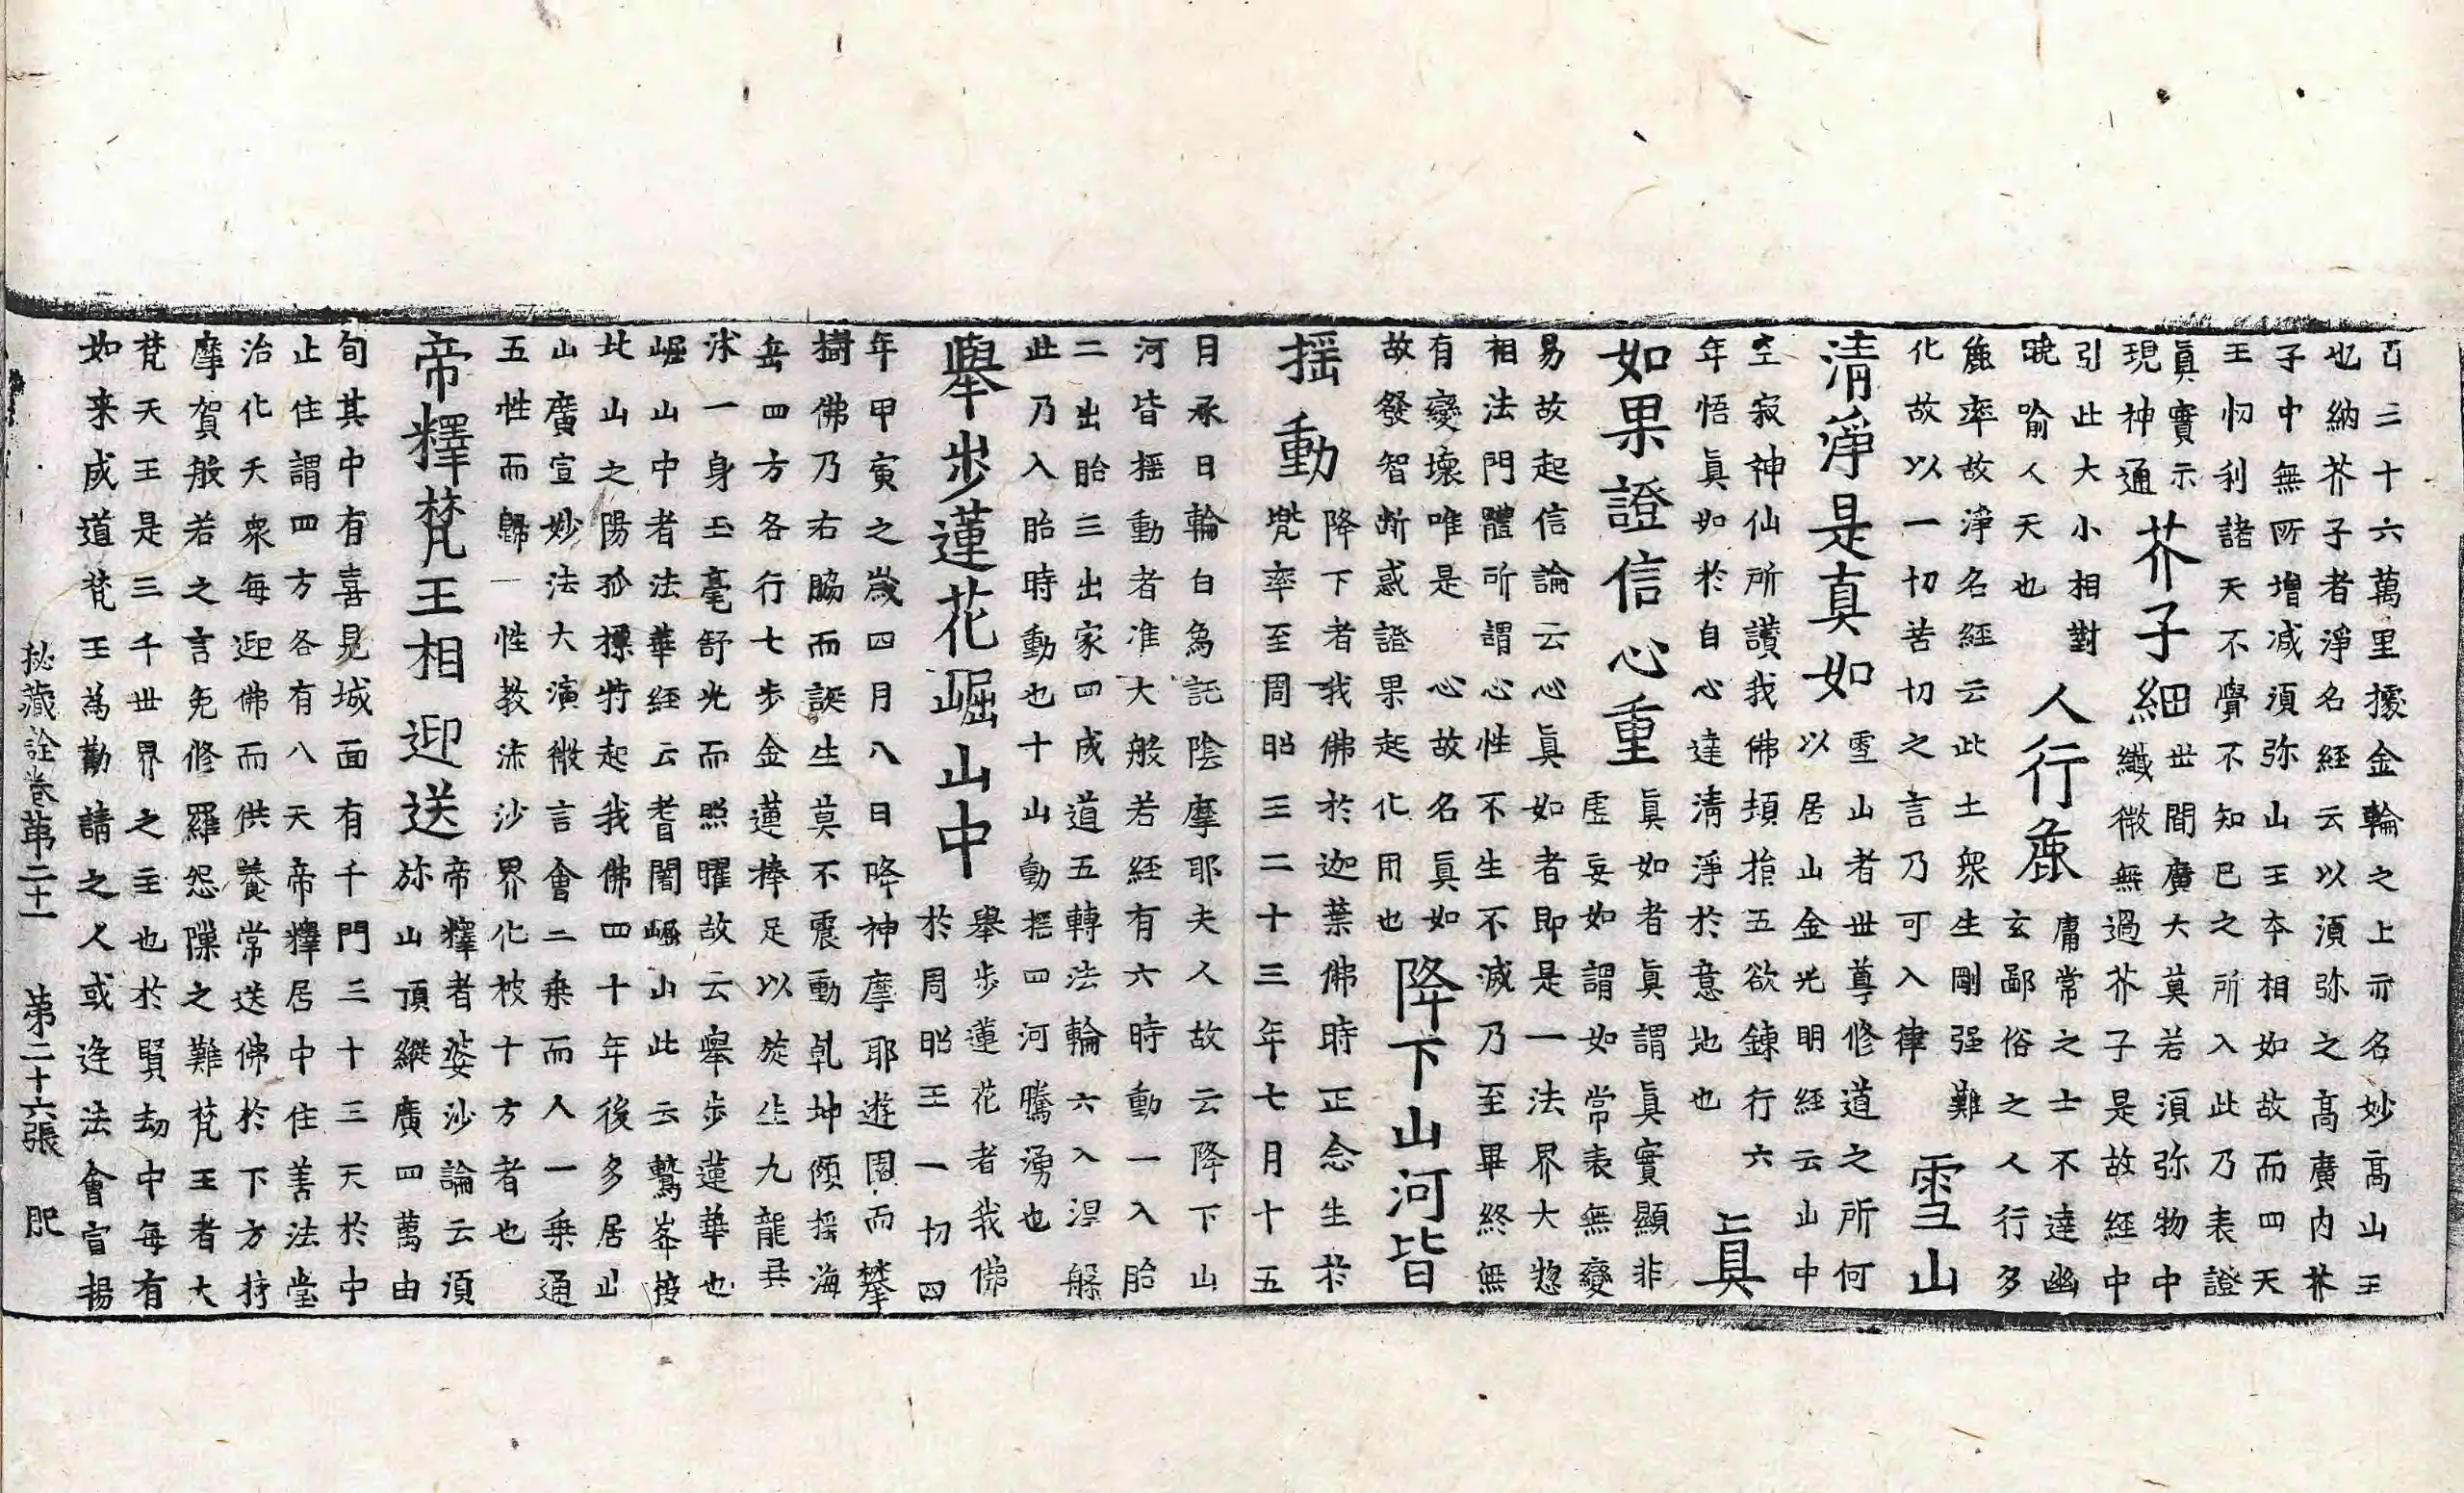 百二十六萬里據金輪之上亦名妙高山王
也納芥子者淨名經云以須弥之高廣内芥
子中無所增減須弥山王本相如故而四天
王忉利諸天不覺不知已之所入此乃表證
眞實示
現神通
芥子細
世間廣大莫若須弥物中
纖微無過芥子是故經中
引此大小相對
曉喻人天也
人行麁
庸常之士不達幽
玄鄙俗之人行多
麁率故淨名經云此土衆生剛强難
化故以一切苦切之言乃可入律
雪山
清淨是真如
雪山者世尊修道之所何
以居山金光明經云山中
空寂神仙所讃我佛項指五欲鍊行六
年悟眞如於自心達清淨於意地也
眞
如果證信心重
眞如者眞謂眞實顯非
虛妄如謂如常表無變
易故起信論云心眞如者即是一法界大惣
相法門體所謂心性不生不滅乃至畢終無
有變壞唯是 心故名眞如
故發智斷惑證果起化用也
降下山河皆
揺動
降下者我佛於迦葉佛時正念生於
兠率至周昭王二十三年七月十五
月承日輪白為託陰摩耶夫人故云降下山
河皆揺動者准大般若經有六時動一入胎
二出胎三出家四成道五轉法輪六入涅槃
此乃入胎時動也十山動揺四河騰湧也
舉步蓮花崛山中
舉步蓮花者我佛
於周昭王一切四
年甲寅之歲四月八日降神摩耶遊園而攀
樹佛乃右脇而誕生莫不震動乹坤傾揺海
岳四方各行七步金蓮捧足以旋生九龍共
沭一身玉毫舒光而照曜故云舉步蓮華也
崛山中者法華經云耆闍崛山此云鷲峯按
此山之陽孤標特起我佛四十年後多居止
山廣宣妙法大演微言會二乘而入一乘通
五性而歸一性教流沙界化被十方者也
帝釋梵王相迎送
帝釋者婆沙論云須
弥山頂縱廣四萬由
旬其中有喜見城面有千門三十三天於中
止住謂四方各有八天帝釋居中住善法堂
治化天衆每迎佛而供養常送佛於下方持
摩賀般若之言免修羅怨隟之難梵王者大
梵天王是三千世界之主也於賢劫中每有
如来成道梵王為勸請之人或逢法會宣揚
秘藏詮卷第二十一 第二十六張 肥